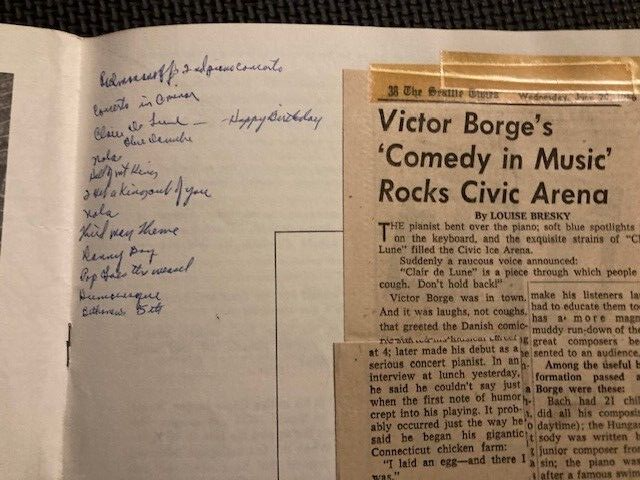 Rachmaninoff's 2nd piano concerto
Concerto in C minor
Claire De Lune — - Happy Birthday
Blue Danube
Nola
Hall of Mt King
I get a Kick out of you
Nola
Third Man Theme
Danny Boy
Pop Goes the weasel
Humoresque
5th
38 The Seattle Times Wednesday, June 20
Victor Borge's
'Comedy in Music'
Rocks Civic Arena
By LOUISE BRESKY
THE pianist bent over the piano; soft blue spotlights
on the keyboard, and the exquisite strains of "Cl
Lune" filled the Civic Ice Arena.
Suddenly a raucous voice announced:
"Clair de Lune" is a piece through which people
cough. Don't hold back!"
Victor Borge was in town.
And it was laughs, not coughs,
that greeted the Danish comic-
at 4; later made his debut as a
serious concert pianist. In an
interview at lunch yesterday,
he said he couldn't say just
when the first note of humor
crept into his playing. It prob-
ably occurred just the way he
said he began his gigantic
Connecticut chicken farm:
"I laid an egg—and there I
was."
make his listeners la
had to educate them to
has a more magn
muddy run-down of the
great composers be
sented to an audience.
Among the useful b
formation passed
Borge were these:
Bach had 21 chil
did all his composi
daytime); the Hungar
sody was written
junior composer fro
sin; the piano was
after a famous swim